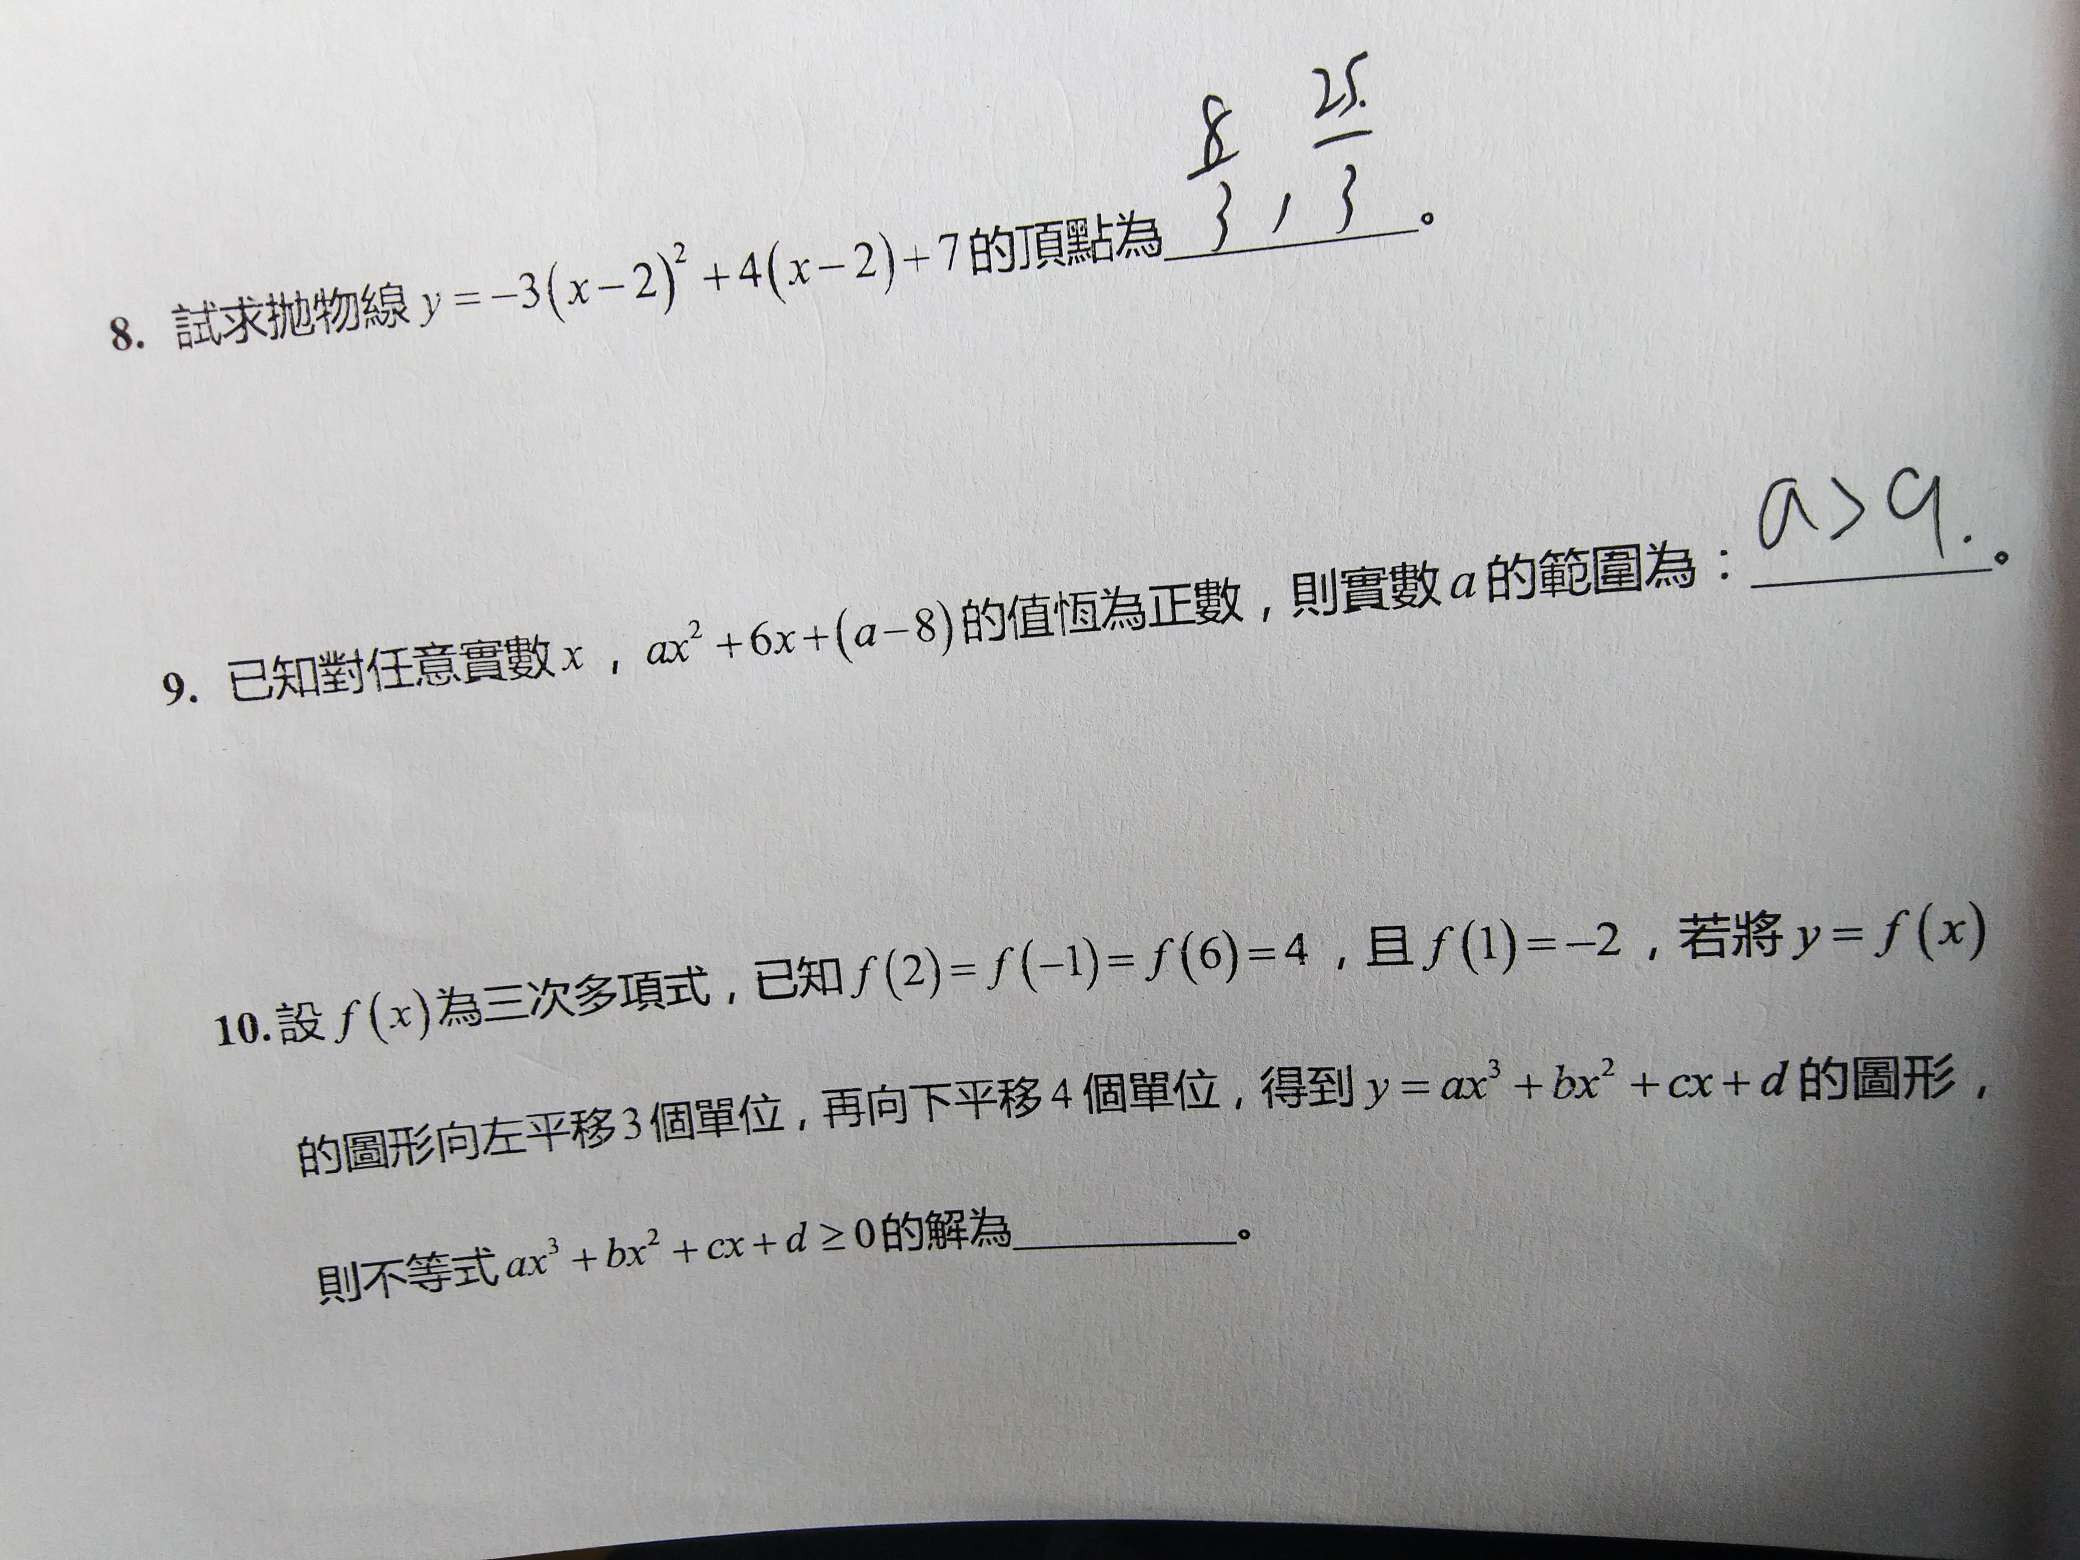 8. 試求拋物線 y = -3(x-2)² + 4(x-2) + 7 的頂點為 8/3 , 25/3 。
9. 已知對任意實數 x , ax² + 6x + (a-8) 的值恆為正數 , 則實數 a 的範圍為 : a > 9. 。
10. 設 f(x) 為三次多項式 , 已知 f(2) = f(-1) = f(6) = 4 , 且 f(1) = -2 , 若將 y = f(x)
的圖形向左平移 3 個單位 , 再向下平移 4 個單位 , 得到 y = ax³ + bx² + cx + d 的圖形 ,
則不等式 ax³ + bx² + cx + d ≥ 0 的解為________。